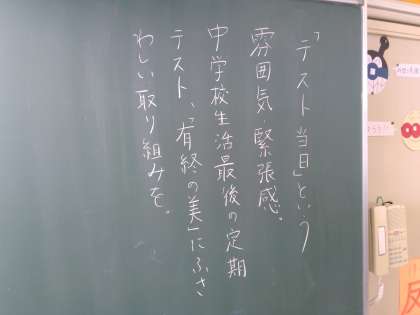 「テスト当日」という
雰囲気・緊張感。
中学校生活最後の定期
テスト、「有終の美」にふさ
わしい取り組みを。
反